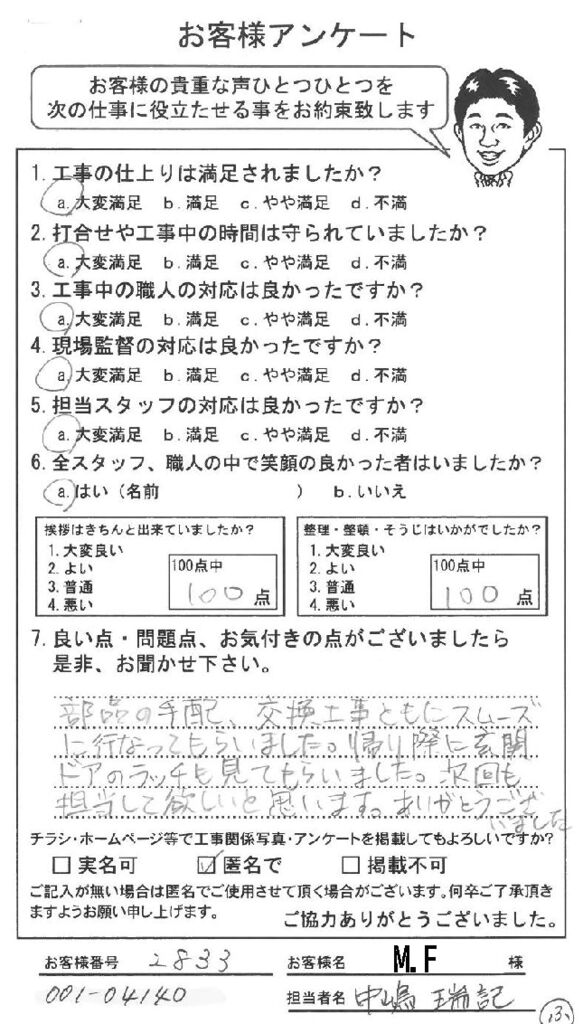 お客様アンケート
お客様の貴重な声ひとつひとつを
次の仕事に役立たせる事をお約束致します
1. 工事の仕上りは満足されましたか？
a. 大変満足 b. 満足 c. やや満足 d. 不満
2. 打合せや工事中の時間は守られていましたか？
a. 大変満足 b. 満足 c. やや満足 d. 不満
3. 工事中の職人の対応は良かったですか？
a. 大変満足 b. 満足 c. やや満足 d. 不満
4. 現場監督の対応は良かったですか？
a. 大変満足 b. 満足 c. やや満足 d. 不満
5. 担当スタッフの対応は良かったですか？
a. 大変満足 b. 満足 c. やや満足 d. 不満
6. 全スタッフ、職人の中で笑顔の良かった者はいましたか？
a. はい（名前 ） b. いいえ
挨拶はきちんと出来ていましたか？
1. 大変良い
2. よい
3. 普通
4. 悪い
100点中
100 点
整理・整頓・そうじはいかがでしたか？
1. 大変良い
2. よい
3. 普通
4. 悪い
100点中
100 点
7. 良い点・問題点、お気付きの点がございましたら
是非、お聞かせ下さい。
部品の手配、交換工事ともにスムーズ
に行なってもらいました。帰り際に玄関
ドアのラッチも見てもらいました。次回も
担当して欲しいと思います。ありがとうござ
いました
チラシ・ホームページ等で工事関係写真・アンケートを掲載してもよろしいですか？
□ 実名可 ☑ 匿名で □ 掲載不可
ご記入が無い場合は匿名でご使用させて頂く場合がございます。何卒ご了承頂き
ますようお願い申し上げます。
ご協力ありがとうございました。
お客様番号 2833
お客様名 M.F 様
001-04140
担当者名 中嶋 瑞記
ふ